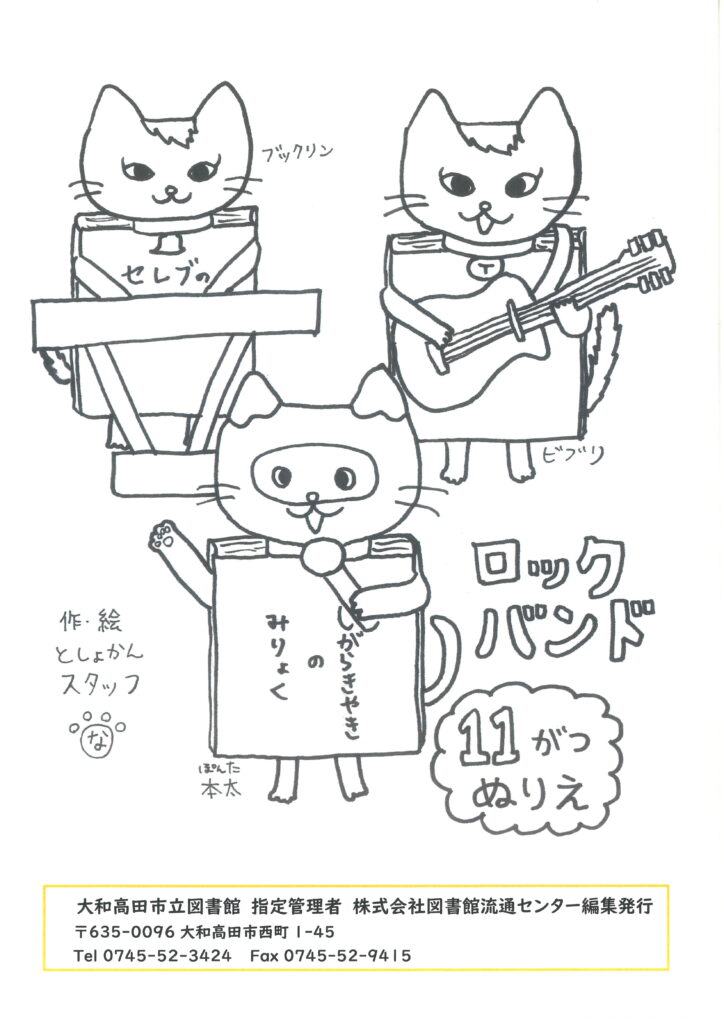 ブックリン
セレブの
T
ビブリ
ロック
バンド
しがらきやき
の
みりょく
作・絵
としょかん
スタッフ
な
ぽんた
本太
11がつ
ぬりえ
大和高田市立図書館 指定管理者 株式会社図書館流通センター編集発行
〒635-0096 大和高田市西町1-45
Tel 0745-52-3424 Fax 0745-52-9415